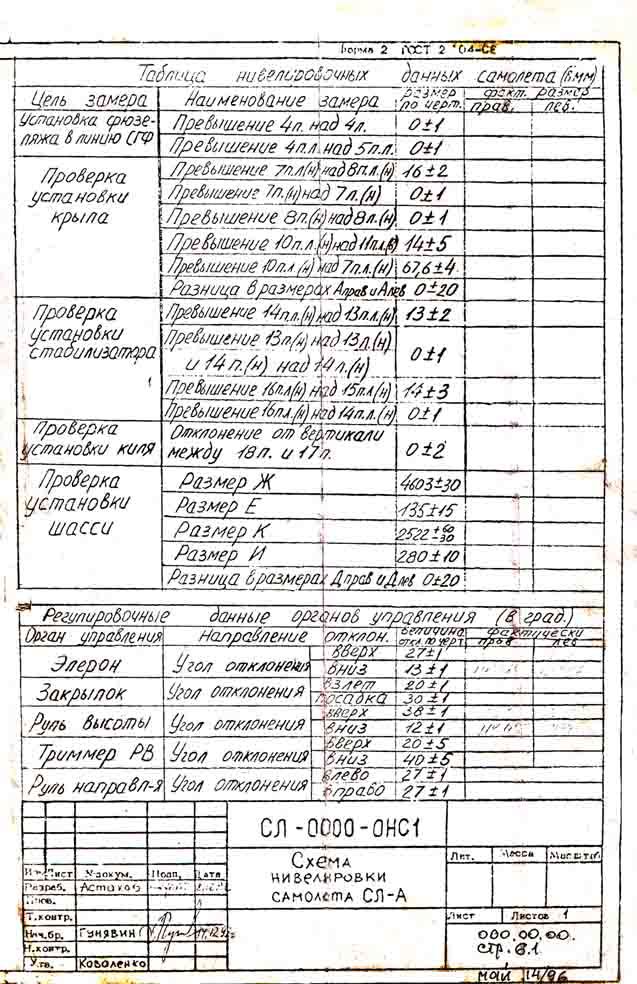 Форма 2 ГОСТ 2 104-68
Таблица нивелировочных данных самолета (в мм)
Цель замера Наименование замера размер по черт. факт. размер
прав. лев.
Установка фюзе-
ляжа в линию СГФ
Превышение 4п. над 4л. 0±1
Превышение 4п.л. над 5п.л. 0±1
Проверка
установки
крыла
Превышение 7пл(н) над 8п.л.(н) 16±2
Превышение 7п.(н) над 7л.(н) 0±1
Превышение 8п.(н) над 8л.(н) 0±1
Превышение 10п.л.(н) над 11п.л(в) 14±5
Превышение 10п.л.(н) над 7п.л.(н) 67,6±4
Разница в размерах Аправ и Алев 0±20
Проверка
установки
стабилизатора
Превышение 14п.л.(н) над 13п.л.(н) 13±2
Превышение 13п(н) над 13л.(н)
и 14п.(н) над 14л.(н) 0±1
Превышение 16пл(н) над 15пл(н) 14±3
Превышение 16пл.(н) над 14п.л.(н) 0±1
Проверка
установки киля
Отклонение от вертикали
между 18п. и 17п. 0±2
Проверка
установки
шасси
Размер Ж 4603±30
Размер Е 135±15
Размер К 2522 +60 -30
Размер И 280±10
Разница в размерах Дправ и Длев 0±20
Регулировочные данные органов управления (в град.)
Орган управления Направление отклон. величина откл. по черт. фактически
прав лев
Элерон Угол отклонения вверх 27±1
вниз 13±1
Закрылок Угол отклонения взлет 20±1
посадка 30±1
Руль высоты Угол отклонения вверх 38±1
вниз 12±1
Триммер РВ Угол отклонения вверх 20±5
вниз 40±5
Руль направл-я Угол отклонения влево 27±1
вправо 27±1
СЛ-0000-0НС1
Схема
нивелировки
самолета СЛ-А
Лит. Масса Масштаб
Изм Лист № докум. Подп. Дата
Разраб. Астахов
Пров.
Т.контр.
Нач.бр. Гунявин
Н.контр.
Утв. Коваленко
Лист Листов 1
000.00.00.
стр. 6.1
май 14/96